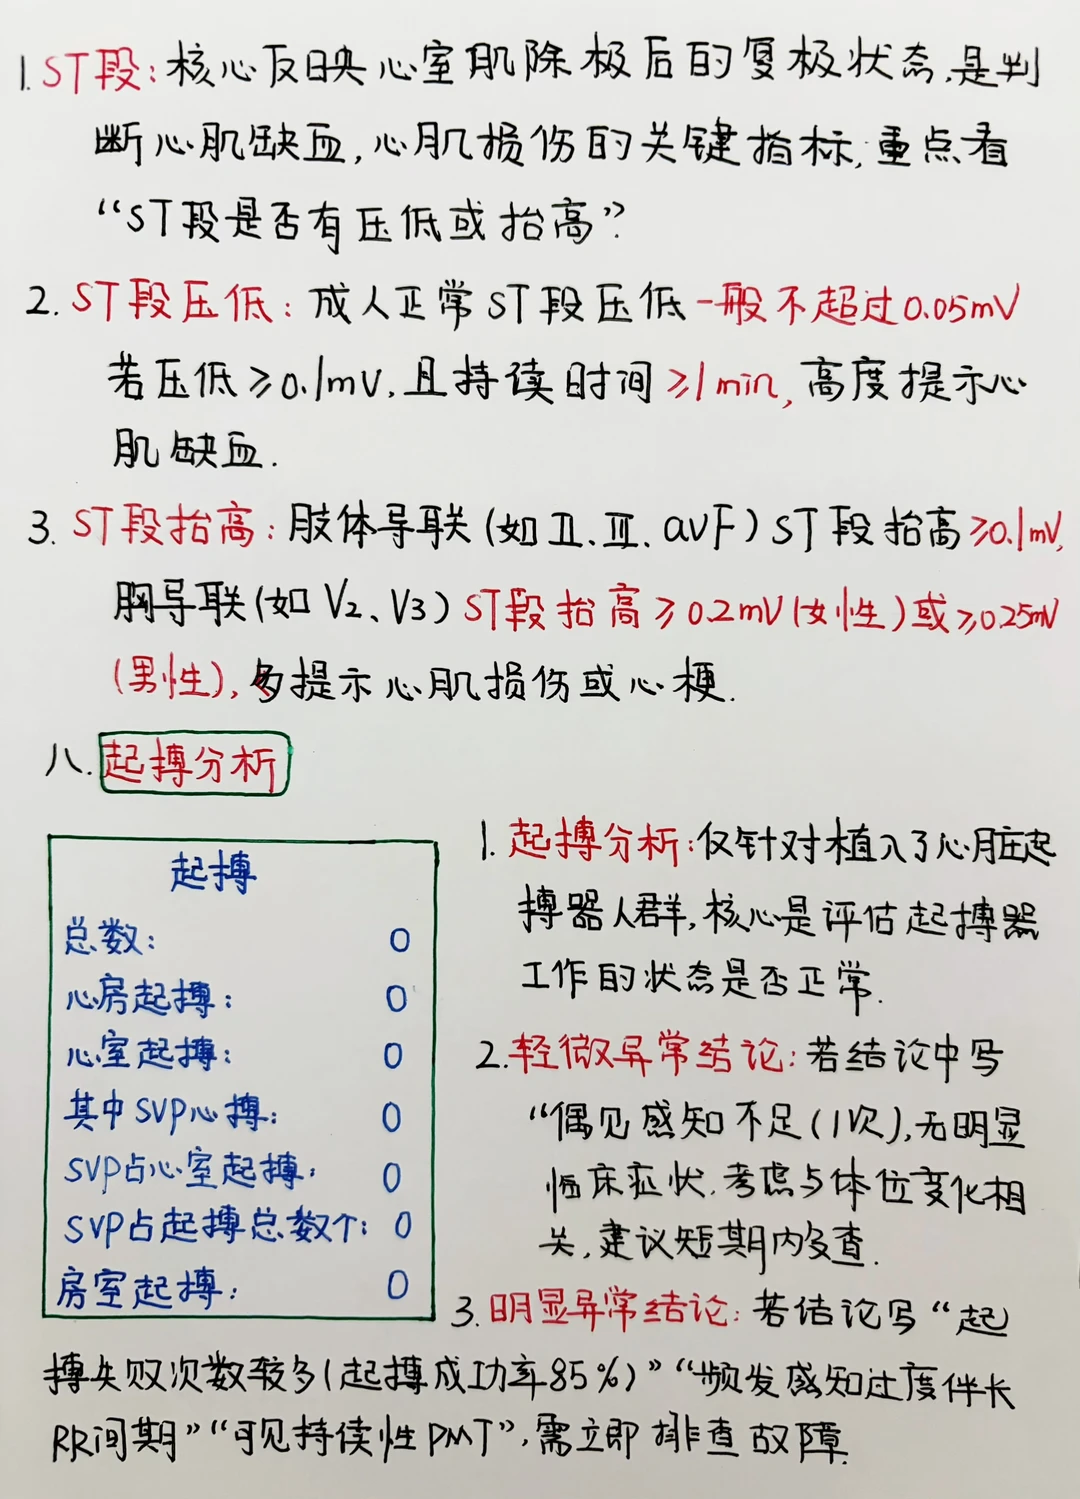 1. ST段:核心反映心室肌除极后的复极状态,是判
断心肌缺血,心肌损伤的关键指标,重点看
“ST段是否有压低或抬高”?
2. ST段压低:成人正常ST段压低一般不超过0.05mV
若压低≥0.1mV,且持读时间≥1min,高度提示心
肌缺血.
3. ST段抬高:肢体导联(如Ⅱ、Ⅲ、aVF)ST段抬高≥0.1mV,
胸导联(如V2、V3)ST段抬高≥0.2mV(女性)或≥0.25mV
(男性),多提示心肌损伤或心梗.
八.起搏分析
起搏
总数: 0
心房起搏: 0
心室起搏: 0
其中SVP心搏: 0
SVP占心室起搏: 0
SVP占起搏总数个: 0
房室起搏: 0
1. 起搏分析:仅针对植入了心脏起
搏器人群,核心是评估起搏器
工作的状态是否正常.
2.轻微异常结论:若结论中写
“偶见感知不足(1次),无明显
临床症状,考虑与体位变化相
关,建议短期内复查.
3.明显异常结论:若结论写“起
搏失败次数较多(起搏成功率85%)”“频发感知过度伴长
RR间期”“可见持续性PMT”,需立即排查故障.